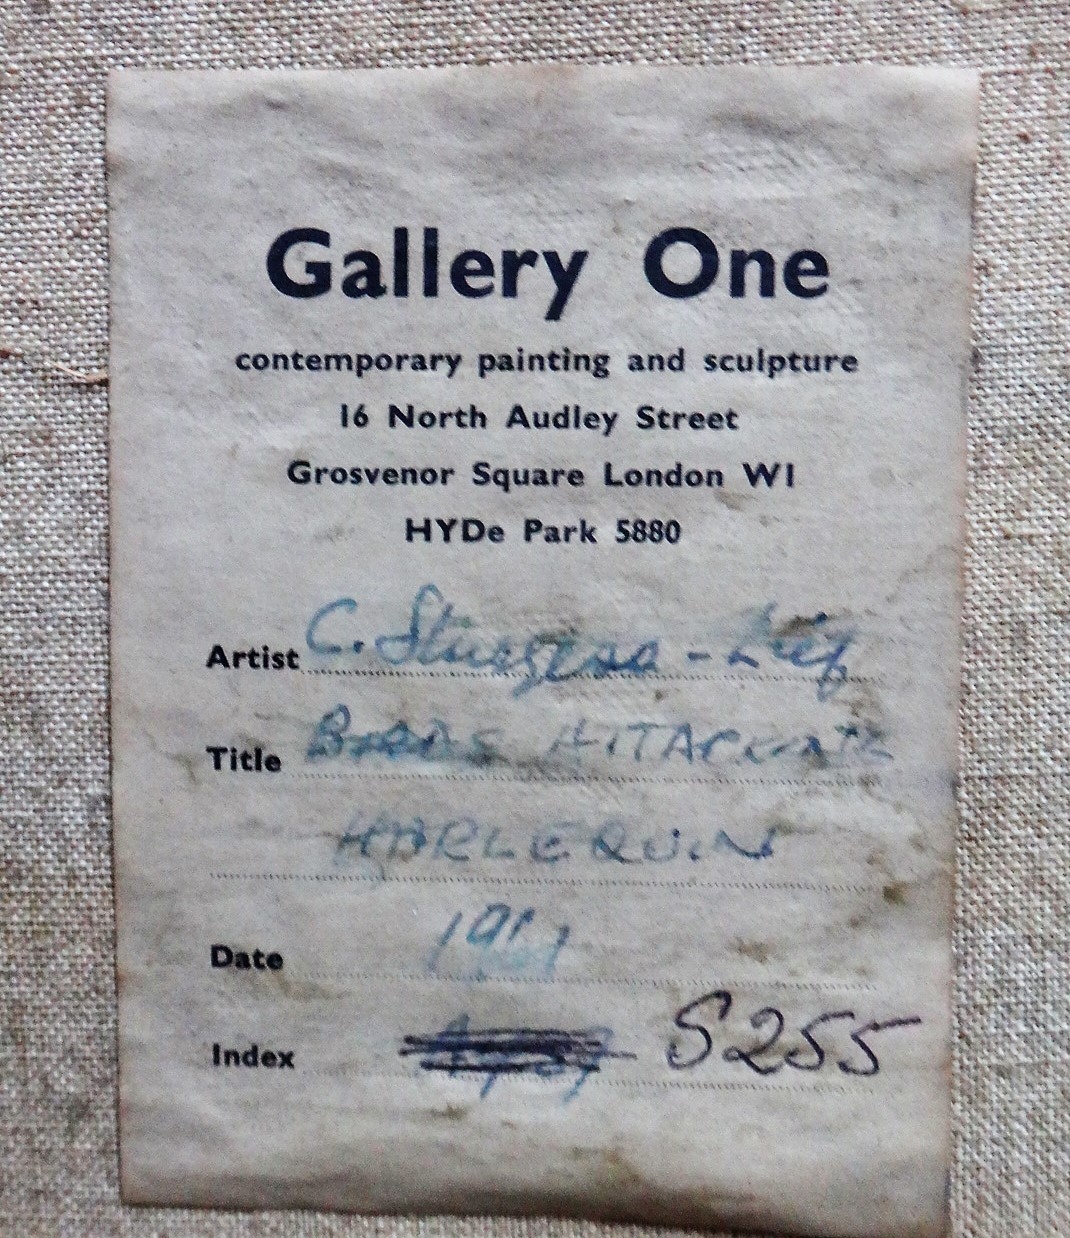 Gallery One
contemporary painting and sculpture
16 North Audley Street
Grosvenor Square London W1
HYDe Park 5880
Artist C. Sturgess -
Title BIRDS ATTACKING
HARLEQUIN
Date 1961
Index S255